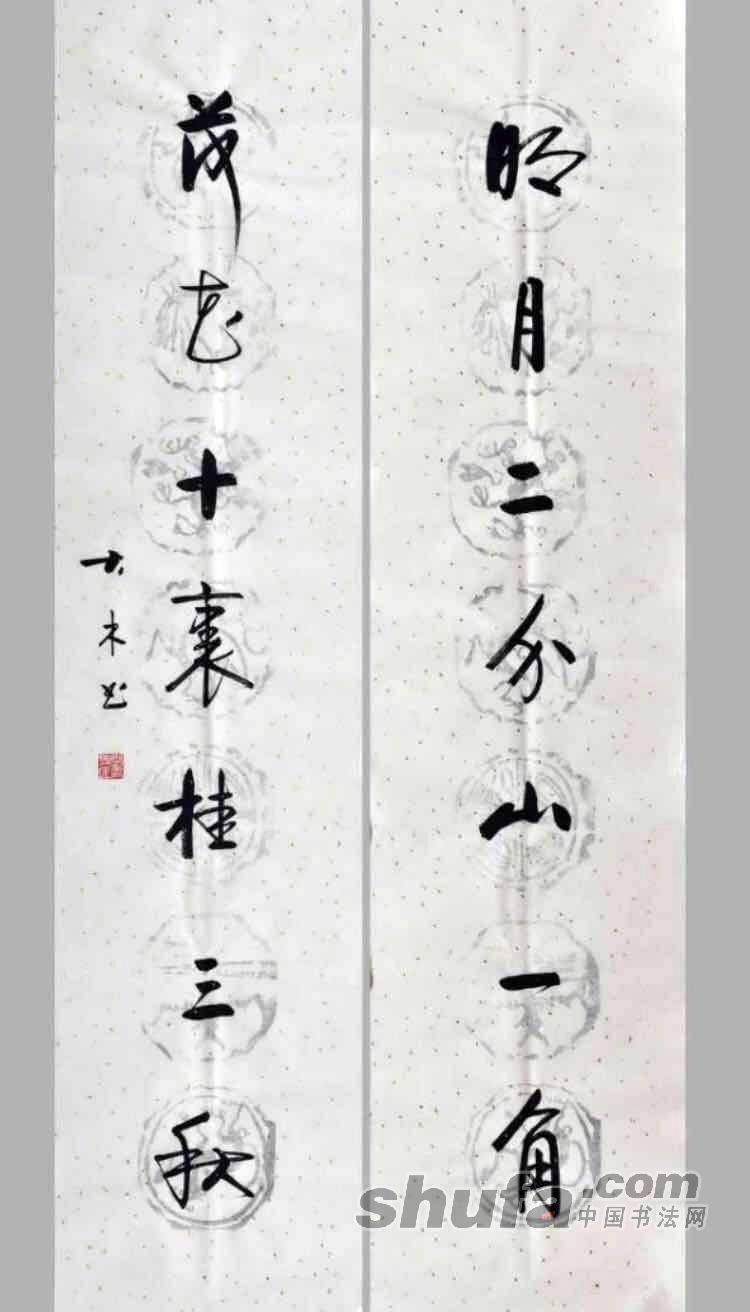 明月二分山一角
荷花十裏桂三秋
木书
shufa.com
中国书法网